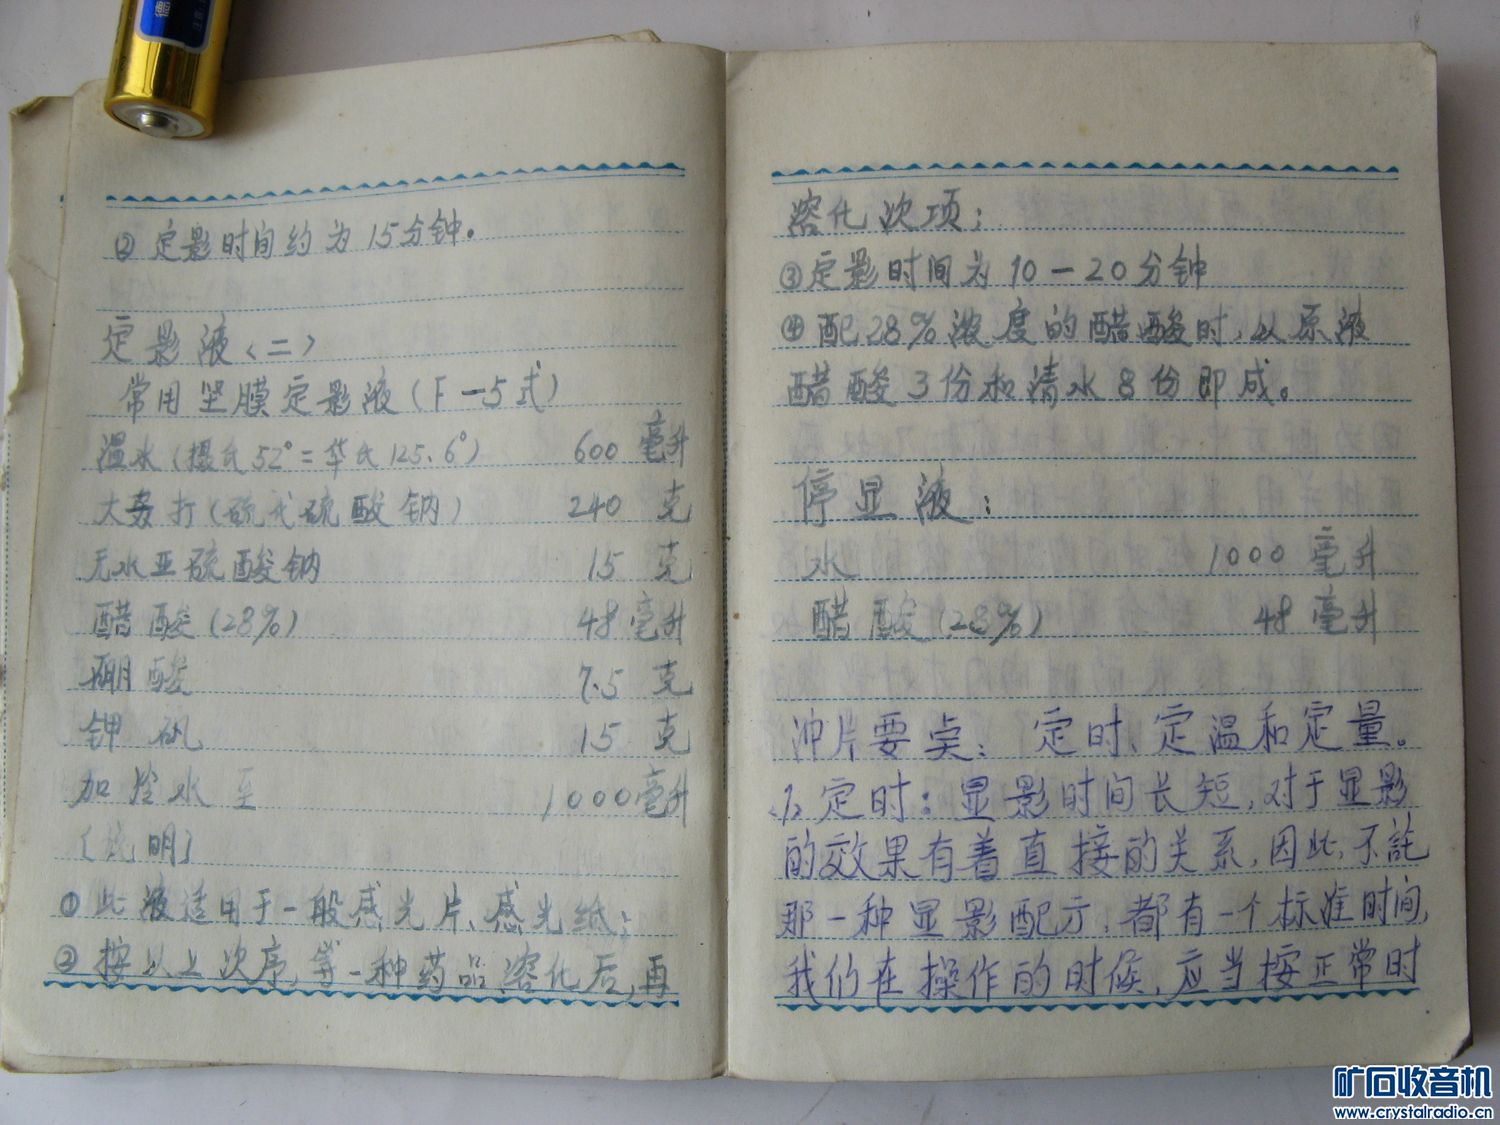 ② 定影时间约为15分钟。
定影液〈二〉
常用坚膜定影液(F-5式)
温水(摄氏52°=华氏125.6°) 600 毫升
大苏打(硫代硫酸钠) 240 克
无水亚硫酸钠 15 克
醋酸(28%) 48 毫升
硼酸 7.5 克
钾矾 15 克
加冷水至 1000毫升
〔说明〕
①此液适用于一般感光片、感光纸;
②按以上次序,等一种药品溶化后,再
溶化次项;
③定影时间为10-20分钟
④配28%浓度的醋酸时,以原液
醋酸3份和清水8份即成。
停显液:
水 1000 毫升
醋酸(28%) 48 毫升
冲片要点: 定时、定温和定量。
1、定时:显影时间长短,对于显影
的效果有着直接的关系,因此,不论
那一种显影配方,都有一个标准时间,
我们在操作的时候,应当按正常时
矿石收音机
www.crystalradio.cn